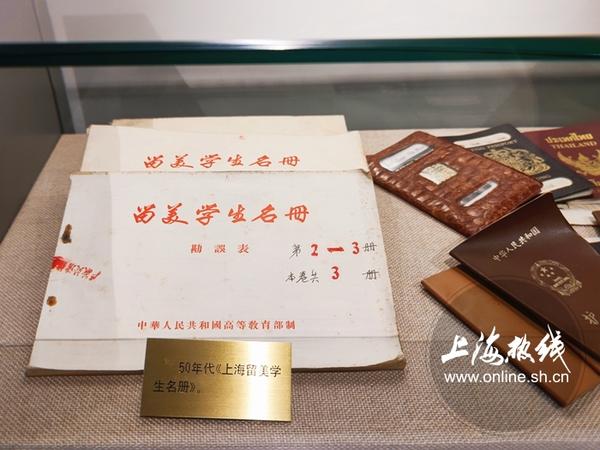 留美学生名冊
留美学生名冊
勘誤表
第2—3册
本卷共3册
中華人民共和國高等教育部制
50年代《上海留美学
生名册》。
PASSPORT
ประเทศไทย
THAILAND
中华人民共和国
护
上海热线
www.online.sh.cn